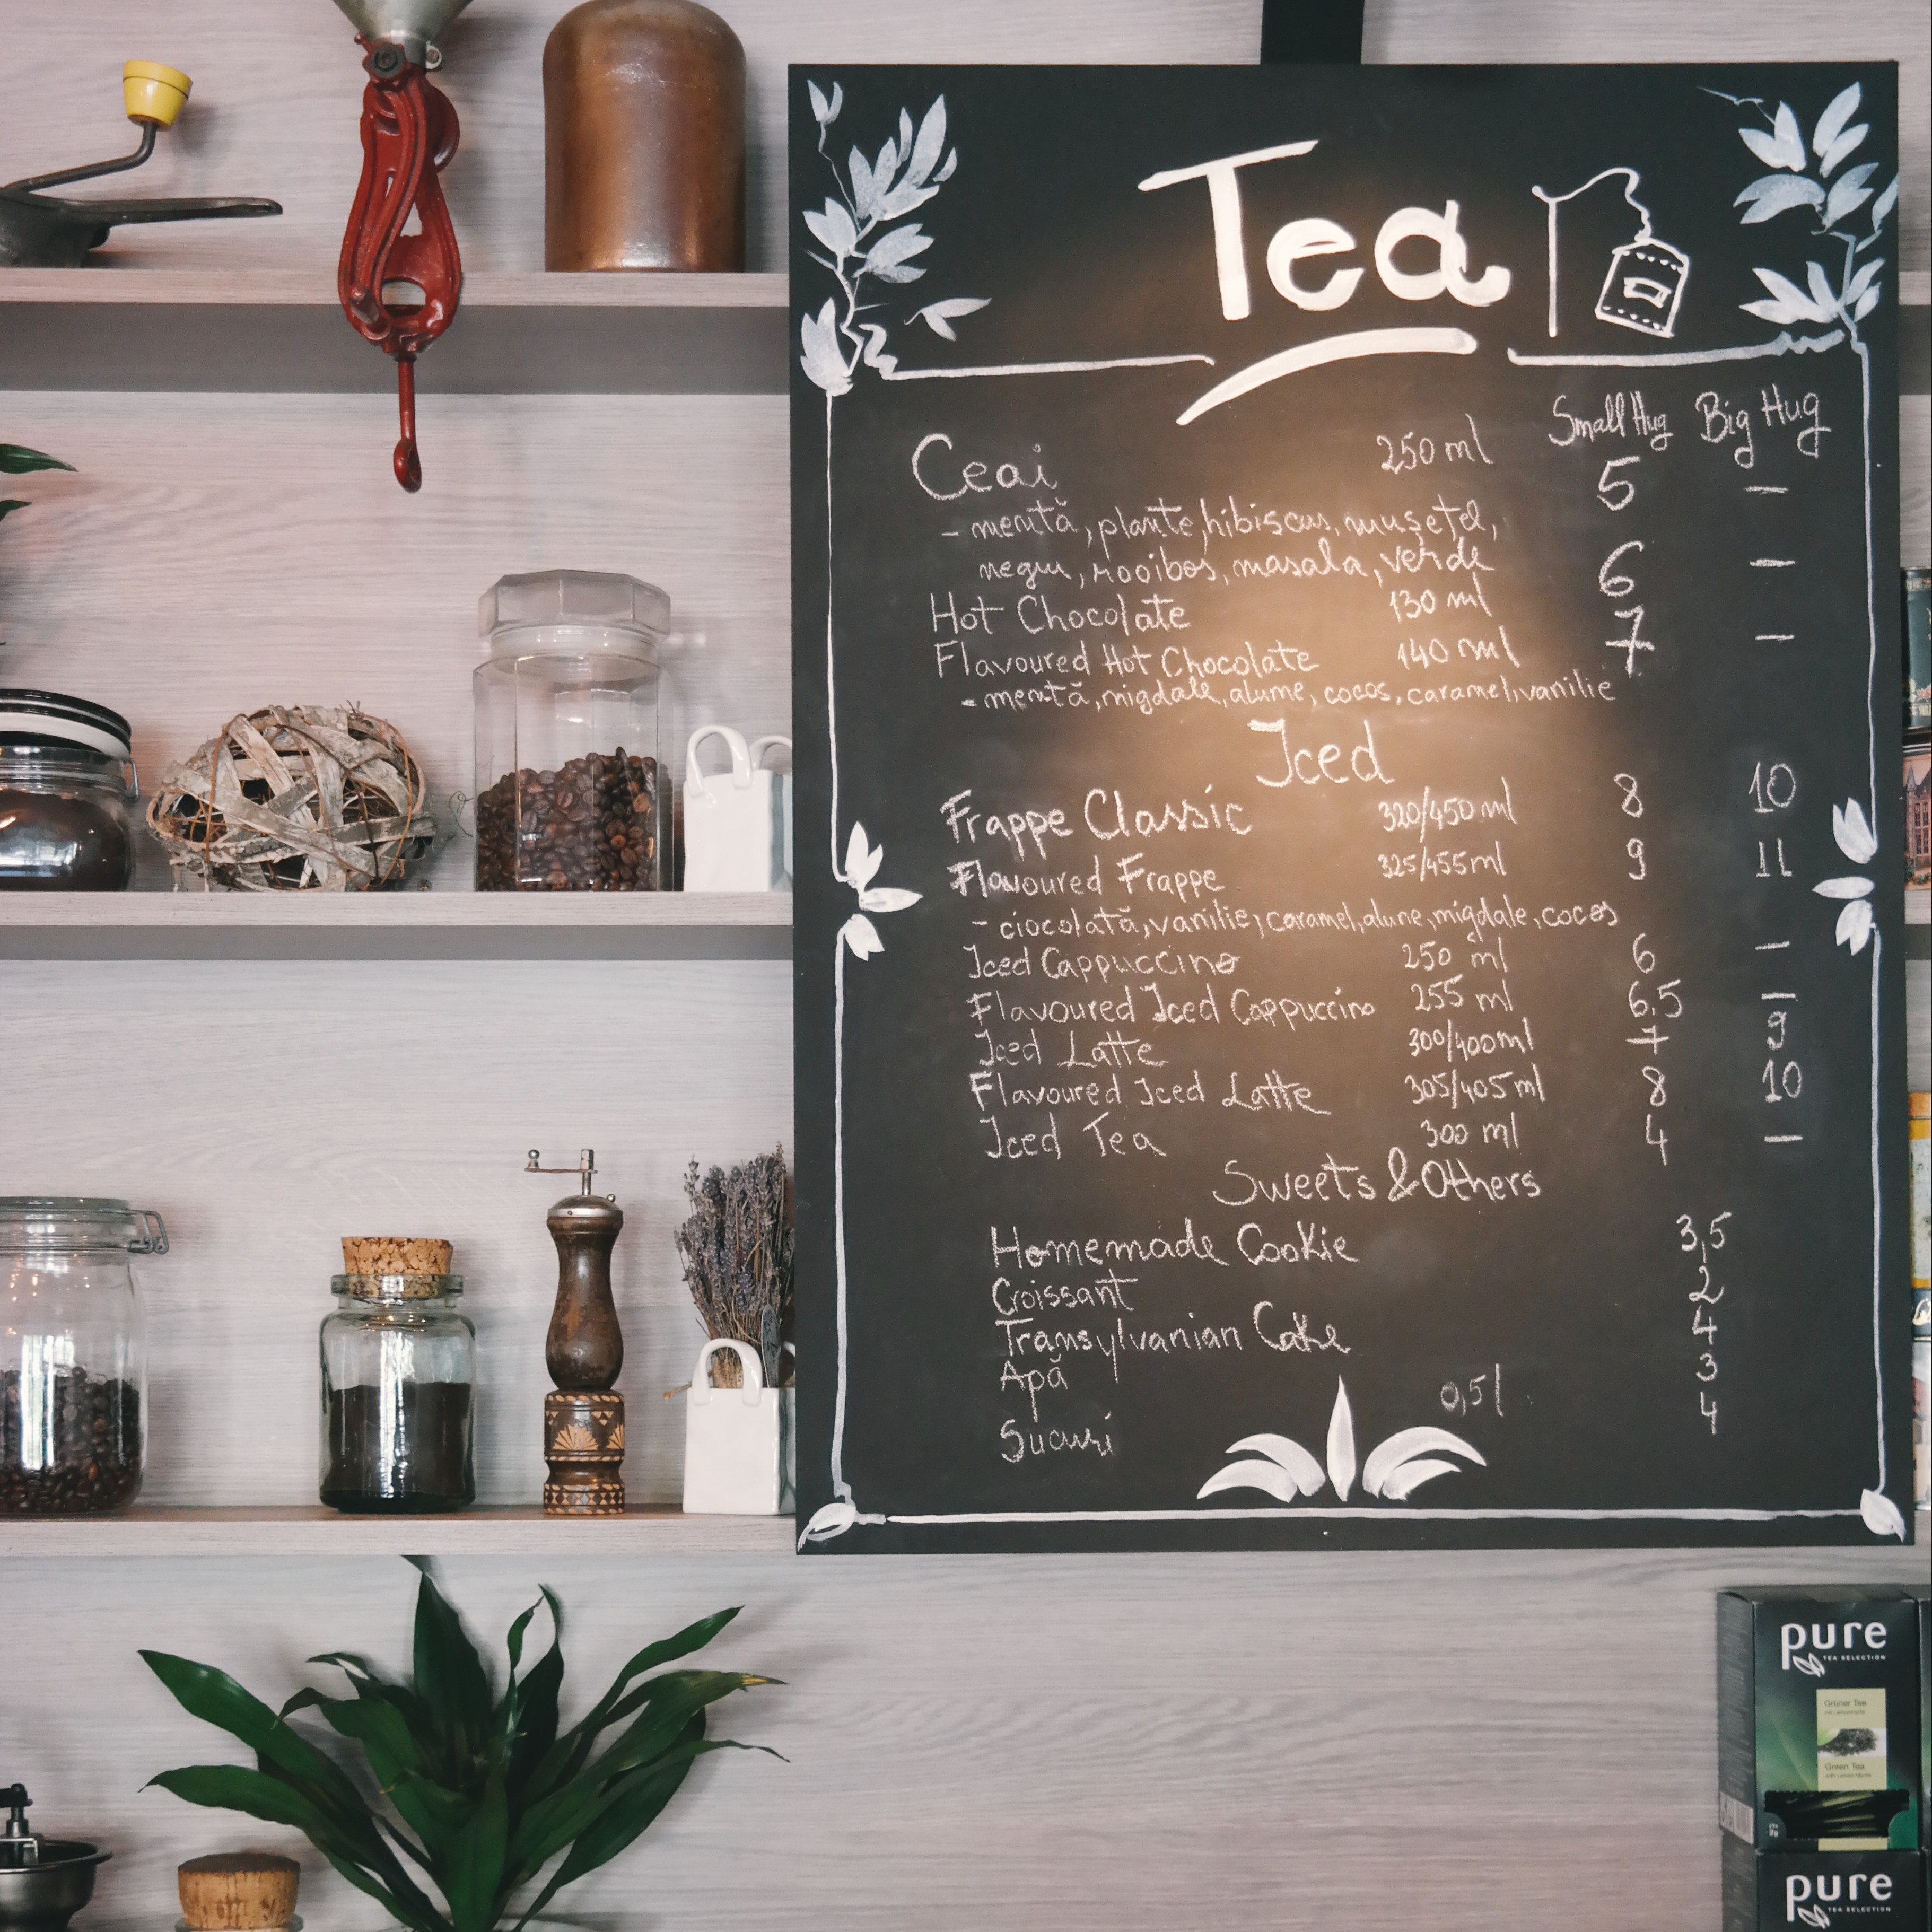 Tea
Small Hug Big Hug
Ceai 250 ml 5 –
- mentă, plante, hibiscus, mușețel,
negru, rooibos, masala, verde
Hot Chocolate 130 ml 6 –
Flavoured Hot Chocolate 140 ml 7 –
- mentă, migdale, alume, cocos, caramel, vanilie
Iced
Frappe Classic 320/450 ml 8 10
Flavoured Frappe 325/455ml 9 11
- ciocolată, vanilie, caramel, alune, migdale, cocos
Iced Cappuccino 250 ml 6 –
Flavoured Iced Cappuccino 255 ml 6,5 –
Iced Latte 300/400ml 7 9
Flavoured Iced Latte 305/405 ml 8 10
Iced Tea 300 ml 4 –
Sweets & Others
Homemade Cookie 3,5
Croissant 2
Transylvanian Cake 4
Apă 0,5 l 3
Sucuri 4
pure
TEA SELECTION
Grüner Tee
Green Tea
pure
TEA SELECTION